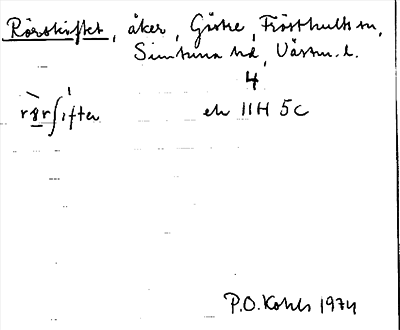 Rörskiftet, åker, Göske, Frösthults sn,
Simtuna hd, Västm. l.
4
rörʃifter ek 11H 5c
P.O. Kohls 1974